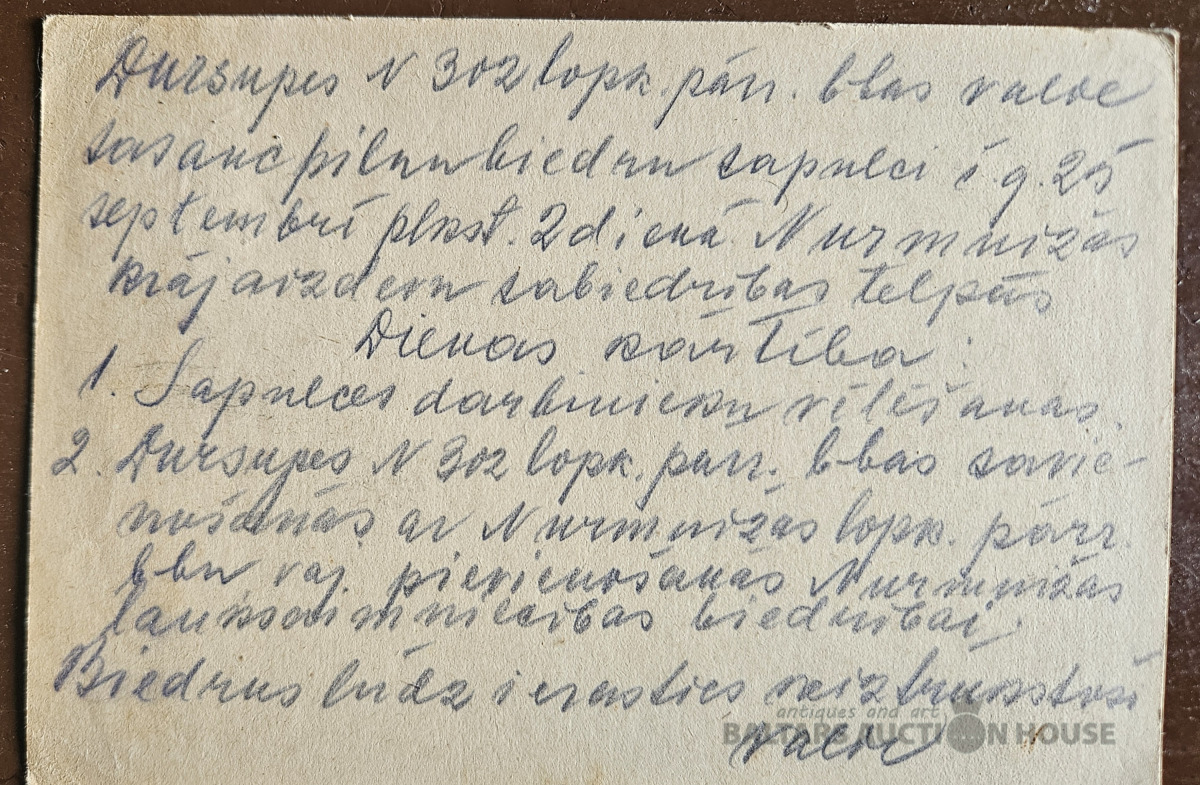 Dursupes N 302 lopk. pārr. b-bas valde
sasauc pilnu biedru sapulci š.g. 25
septembrī plkst. 2 dienā. Nurmuižas
krājaizdevu sabiedrības telpās
Dienas kārtība:
1. Sapulces darbinieku vēlēšanas.
2. Dursupes N 302 lopk. pārr. b-bas savie-
nošanās ar Nurmuižas lopk. pārr.
b-bu vaj pievienošanās Nurmuižas
lauksaimniecības biedrībai
Biedrus lūdz ierasties neiztrūkstoši
antiques and art
BALTARS AUCTION HOUSE
Valde